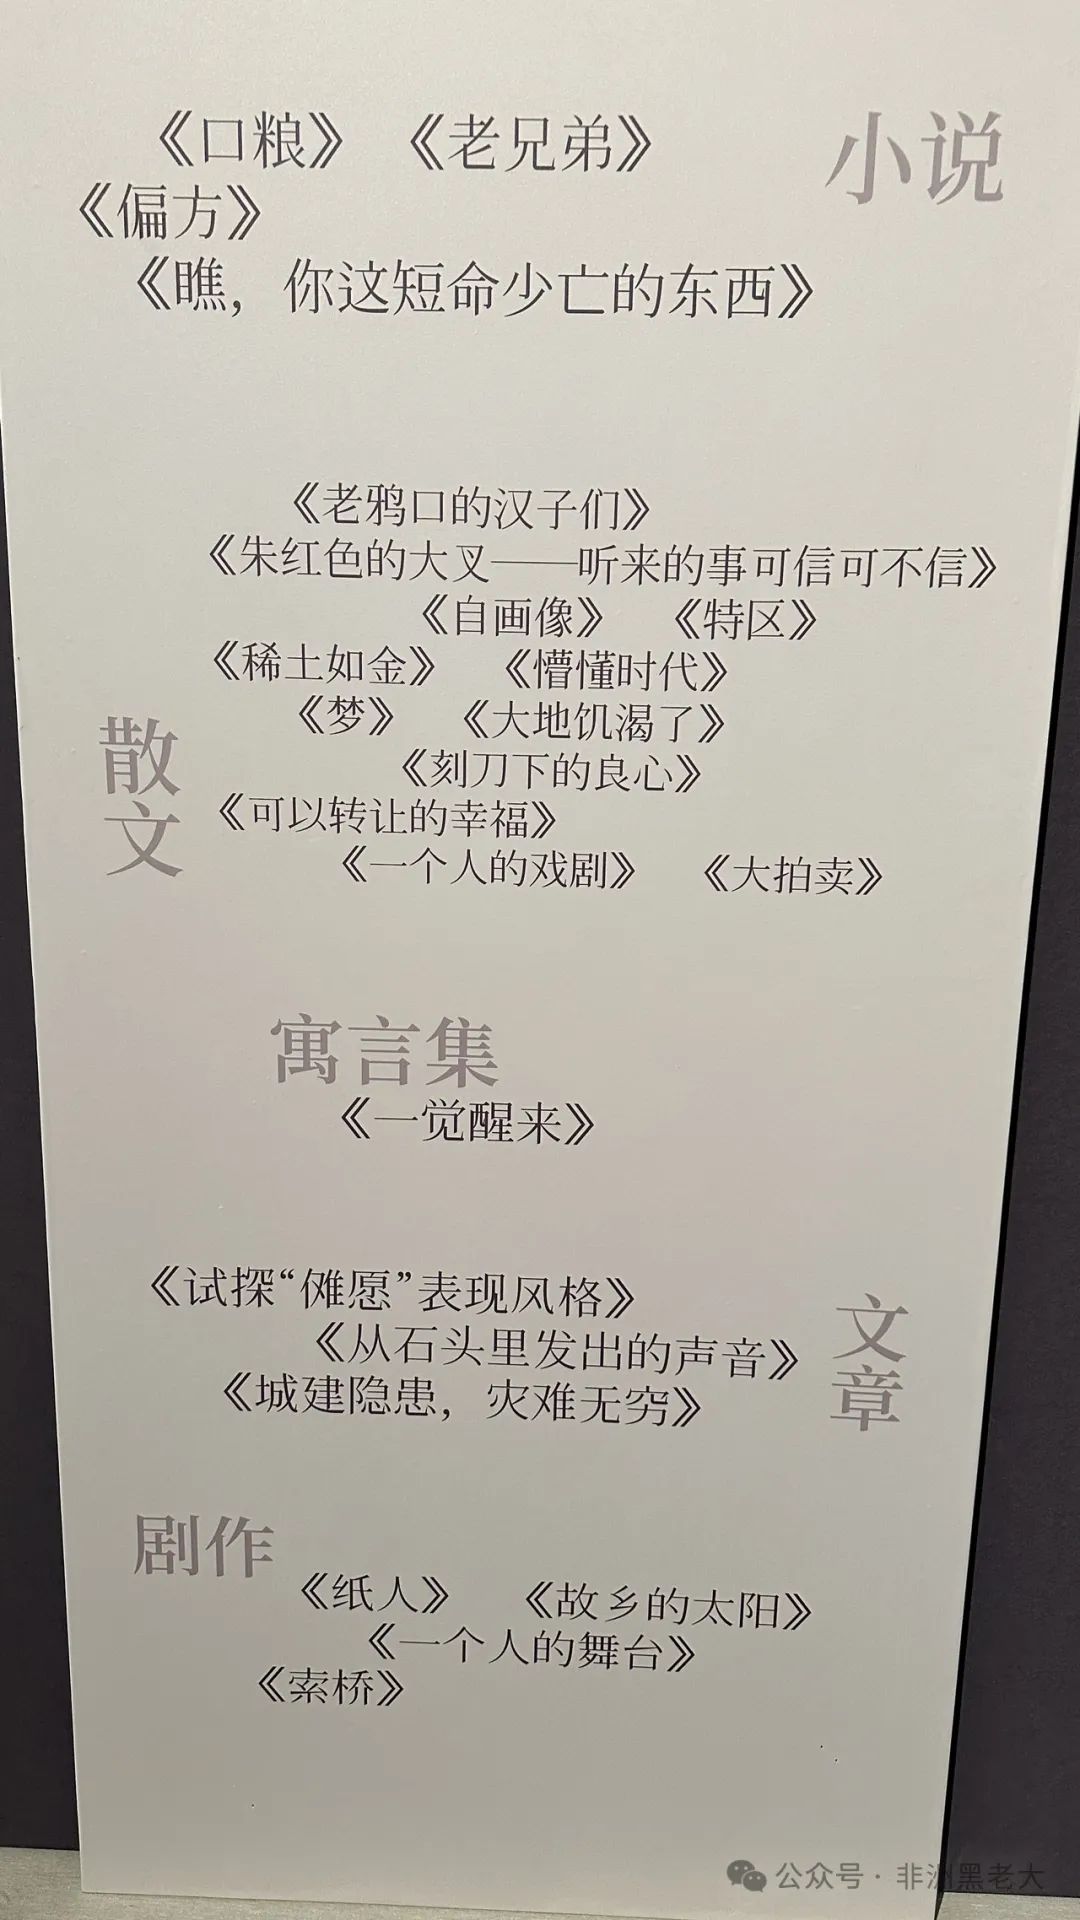 小说
《口粮》 《老兄弟》
《偏方》
《瞧，你这短命少亡的东西》
散文
《老鸦口的汉子们》
《朱红色的大叉——听来的事可信可不信》
《自画像》 《特区》
《稀土如金》 《懵懂时代》
《梦》 《大地饥渴了》
《刻刀下的良心》
《可以转让的幸福》
《一个人的戏剧》 《大拍卖》
寓言集
《一觉醒来》
文章
《试探“傩愿”表现风格》
《从石头里发出的声音》
《城建隐患，灾难无穷》
剧作
《纸人》 《故乡的太阳》
《一个人的舞台》
《索桥》
公众号·非洲黑老大